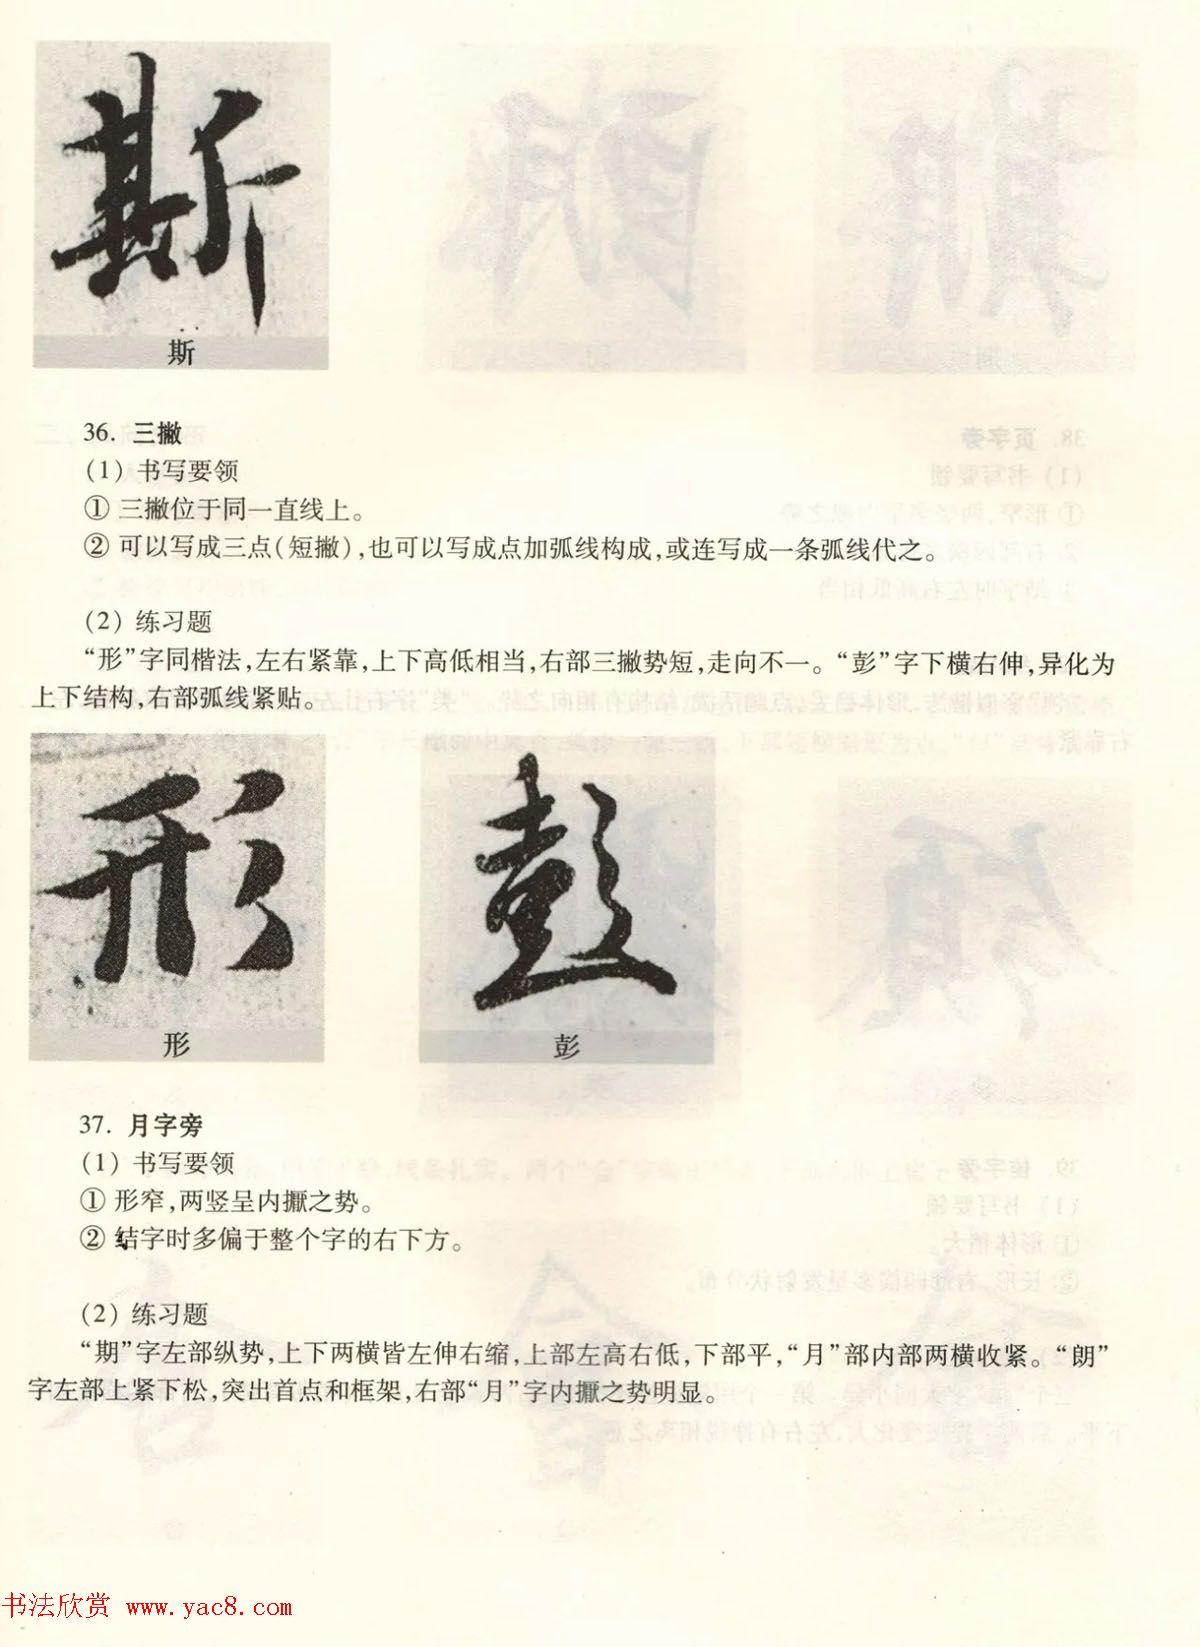 斯
斯
36. 三撇
(1) 书写要领
① 三撇位于同一直线上。
② 可以写成三点(短撇),也可以写成点加弧线构成,或连写成一条弧线代之。
(2) 练习题
“形”字同楷法,左右紧靠,上下高低相当,右部三撇势短,走向不一。“彭”字下横右伸,异化为
上下结构,右部弧线紧贴。
形
彭
形
彭
37. 月字旁
(1) 书写要领
① 形窄,两竖呈内擫之势。
② 结字时多偏于整个字的右下方。
(2) 练习题
“期”字左部纵势,上下两横皆左伸右缩,上部左高右低,下部平,“月”部内部两横收紧。“朗”
字左部上紧下松,突出首点和框架,右部“月”字内擫之势明显。
书法欣赏 www.yac8.com